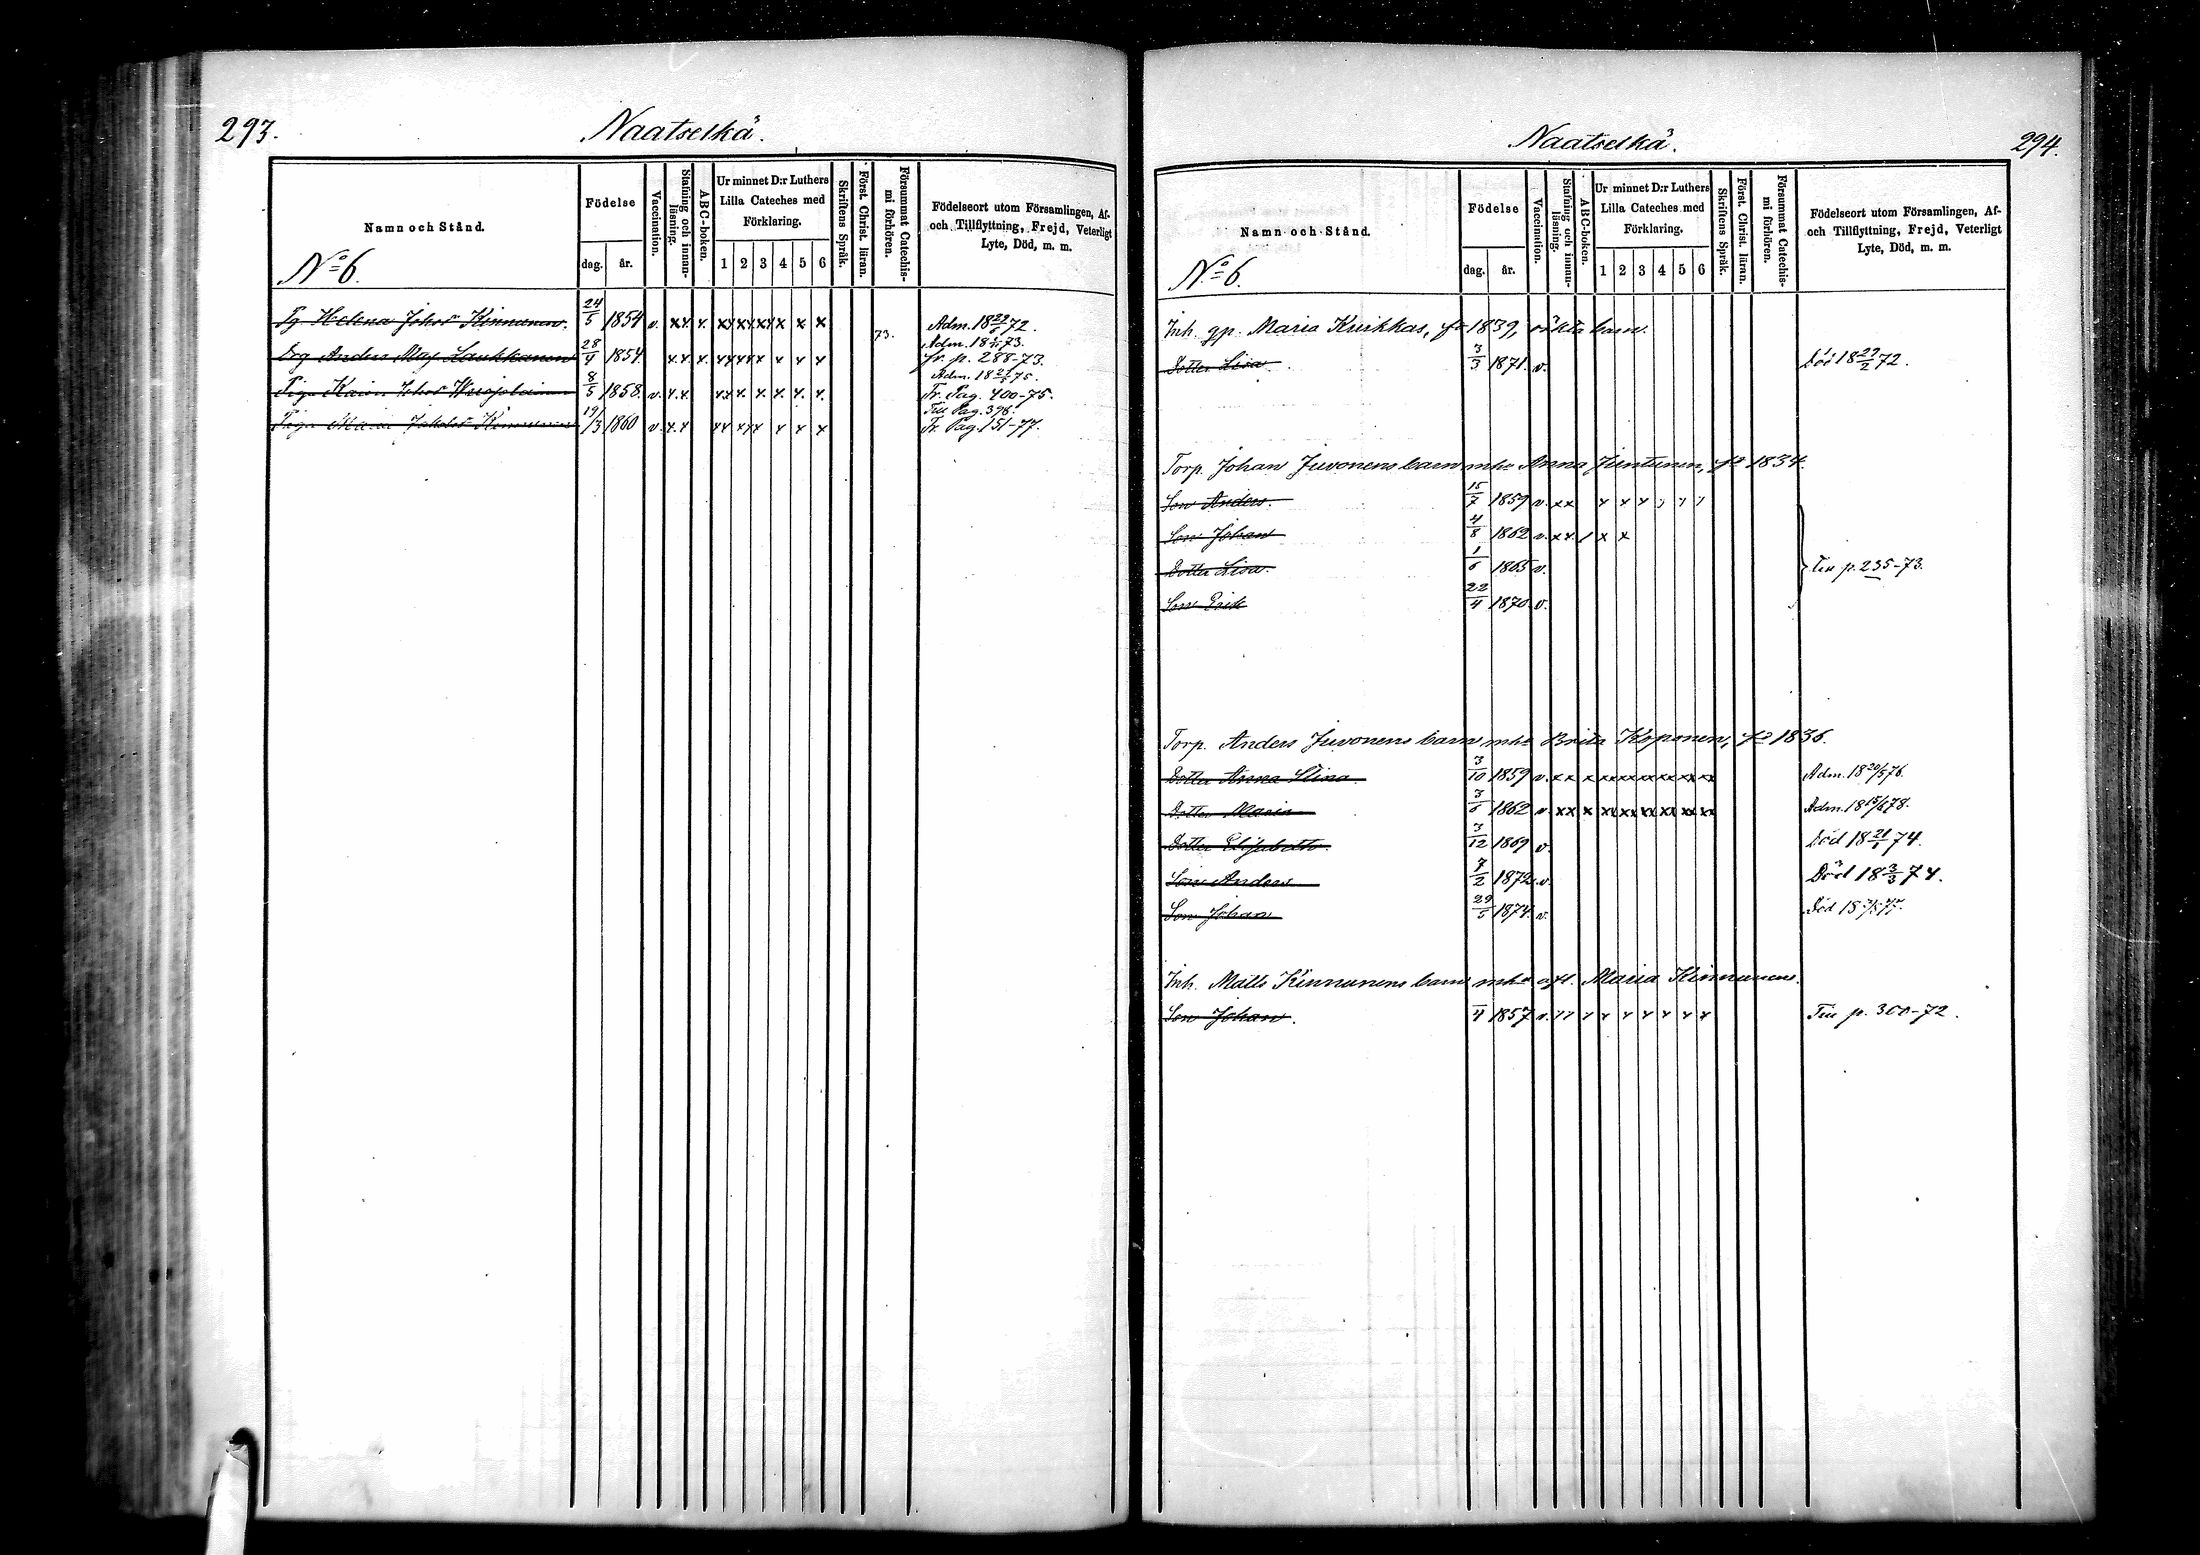 293.
Naatselkä.
Namn och Stånd.
Födelse
dag. år.
Vaccination.
Stafning och innan-läsning.
ABC-boken.
Ur minnet D:r Luthers
Lilla Cateches med
Förklaring.
1 2 3 4 5 6
Skriftens Språk.
Först. Christ. läran.
Försummat Catechis-mi förhören.
Födelseort utom Församlingen, Af-
och Tillflyttning, Frejd, Veterligt
Lyte, Död, m. m.
No 6.
Pg Helena Johsdr Kinnunen. 24/5 1854 v. 73. Adm. 18 /6 72.
Adm. 18 73.
Drg Anders Laukkanen 28/4 1854 fr. p. 288-73.
Adm. 18 75.
Piga Karin Johsdr 8/5 1858. v. Fr. Pag. 400-75.
Till Pag. 398.
Piga Maria Kinnunen 19/3 1860 v. Fr. Pag. 151-77.
294.
Naatselkä.
Namn och Stånd.
Födelse
dag. år.
Vaccination.
Stafning och innan-läsning.
ABC-boken.
Ur minnet D:r Luthers
Lilla Cateches med
Förklaring.
1 2 3 4 5 6
Skriftens Språk.
Först. Christ. läran.
Försummat Catechis-mi förhören.
Födelseort utom Församlingen, Af-
och Tillflyttning, Frejd, Veterligt
Lyte, Död, m. m.
No 6.
Inh. gp. Maria fd 1839, oäkta barn.
Dotter Lisa 3/3 1871. v. Död 18 29/2 72.
Torp. Johan Juvonens barn mhu Anna Juntunen, fd 1834.
Son Anders. 15/7 1859 v.
Son Johan 4/8 1862 v.
Dotter Lisa. 1/6 1865 v. Till p. 235-73.
Son Erik 22/4 1870. v.
Torp. Anders Juvonens barn mhu Brita Koponen, fd 1836.
Dotter Anna Stina. 3/10 1859 v. Adm. 18 20/5 76.
Dotter Maria 3/6 1862 v. Adm. 18 15/6 78.
Dotter Elisabeth. 3/12 1869 v. Död 18 21/1 74.
Son Anders 7/2 1872 v. Död 18 3/3 74.
Son Johan 29/5 1874. v. Död 18
Inh. Matts Kinnunens barn mhu afl. Maria Kinnunen.
Son Johan. /4 1857 v. Till p. 300-72.